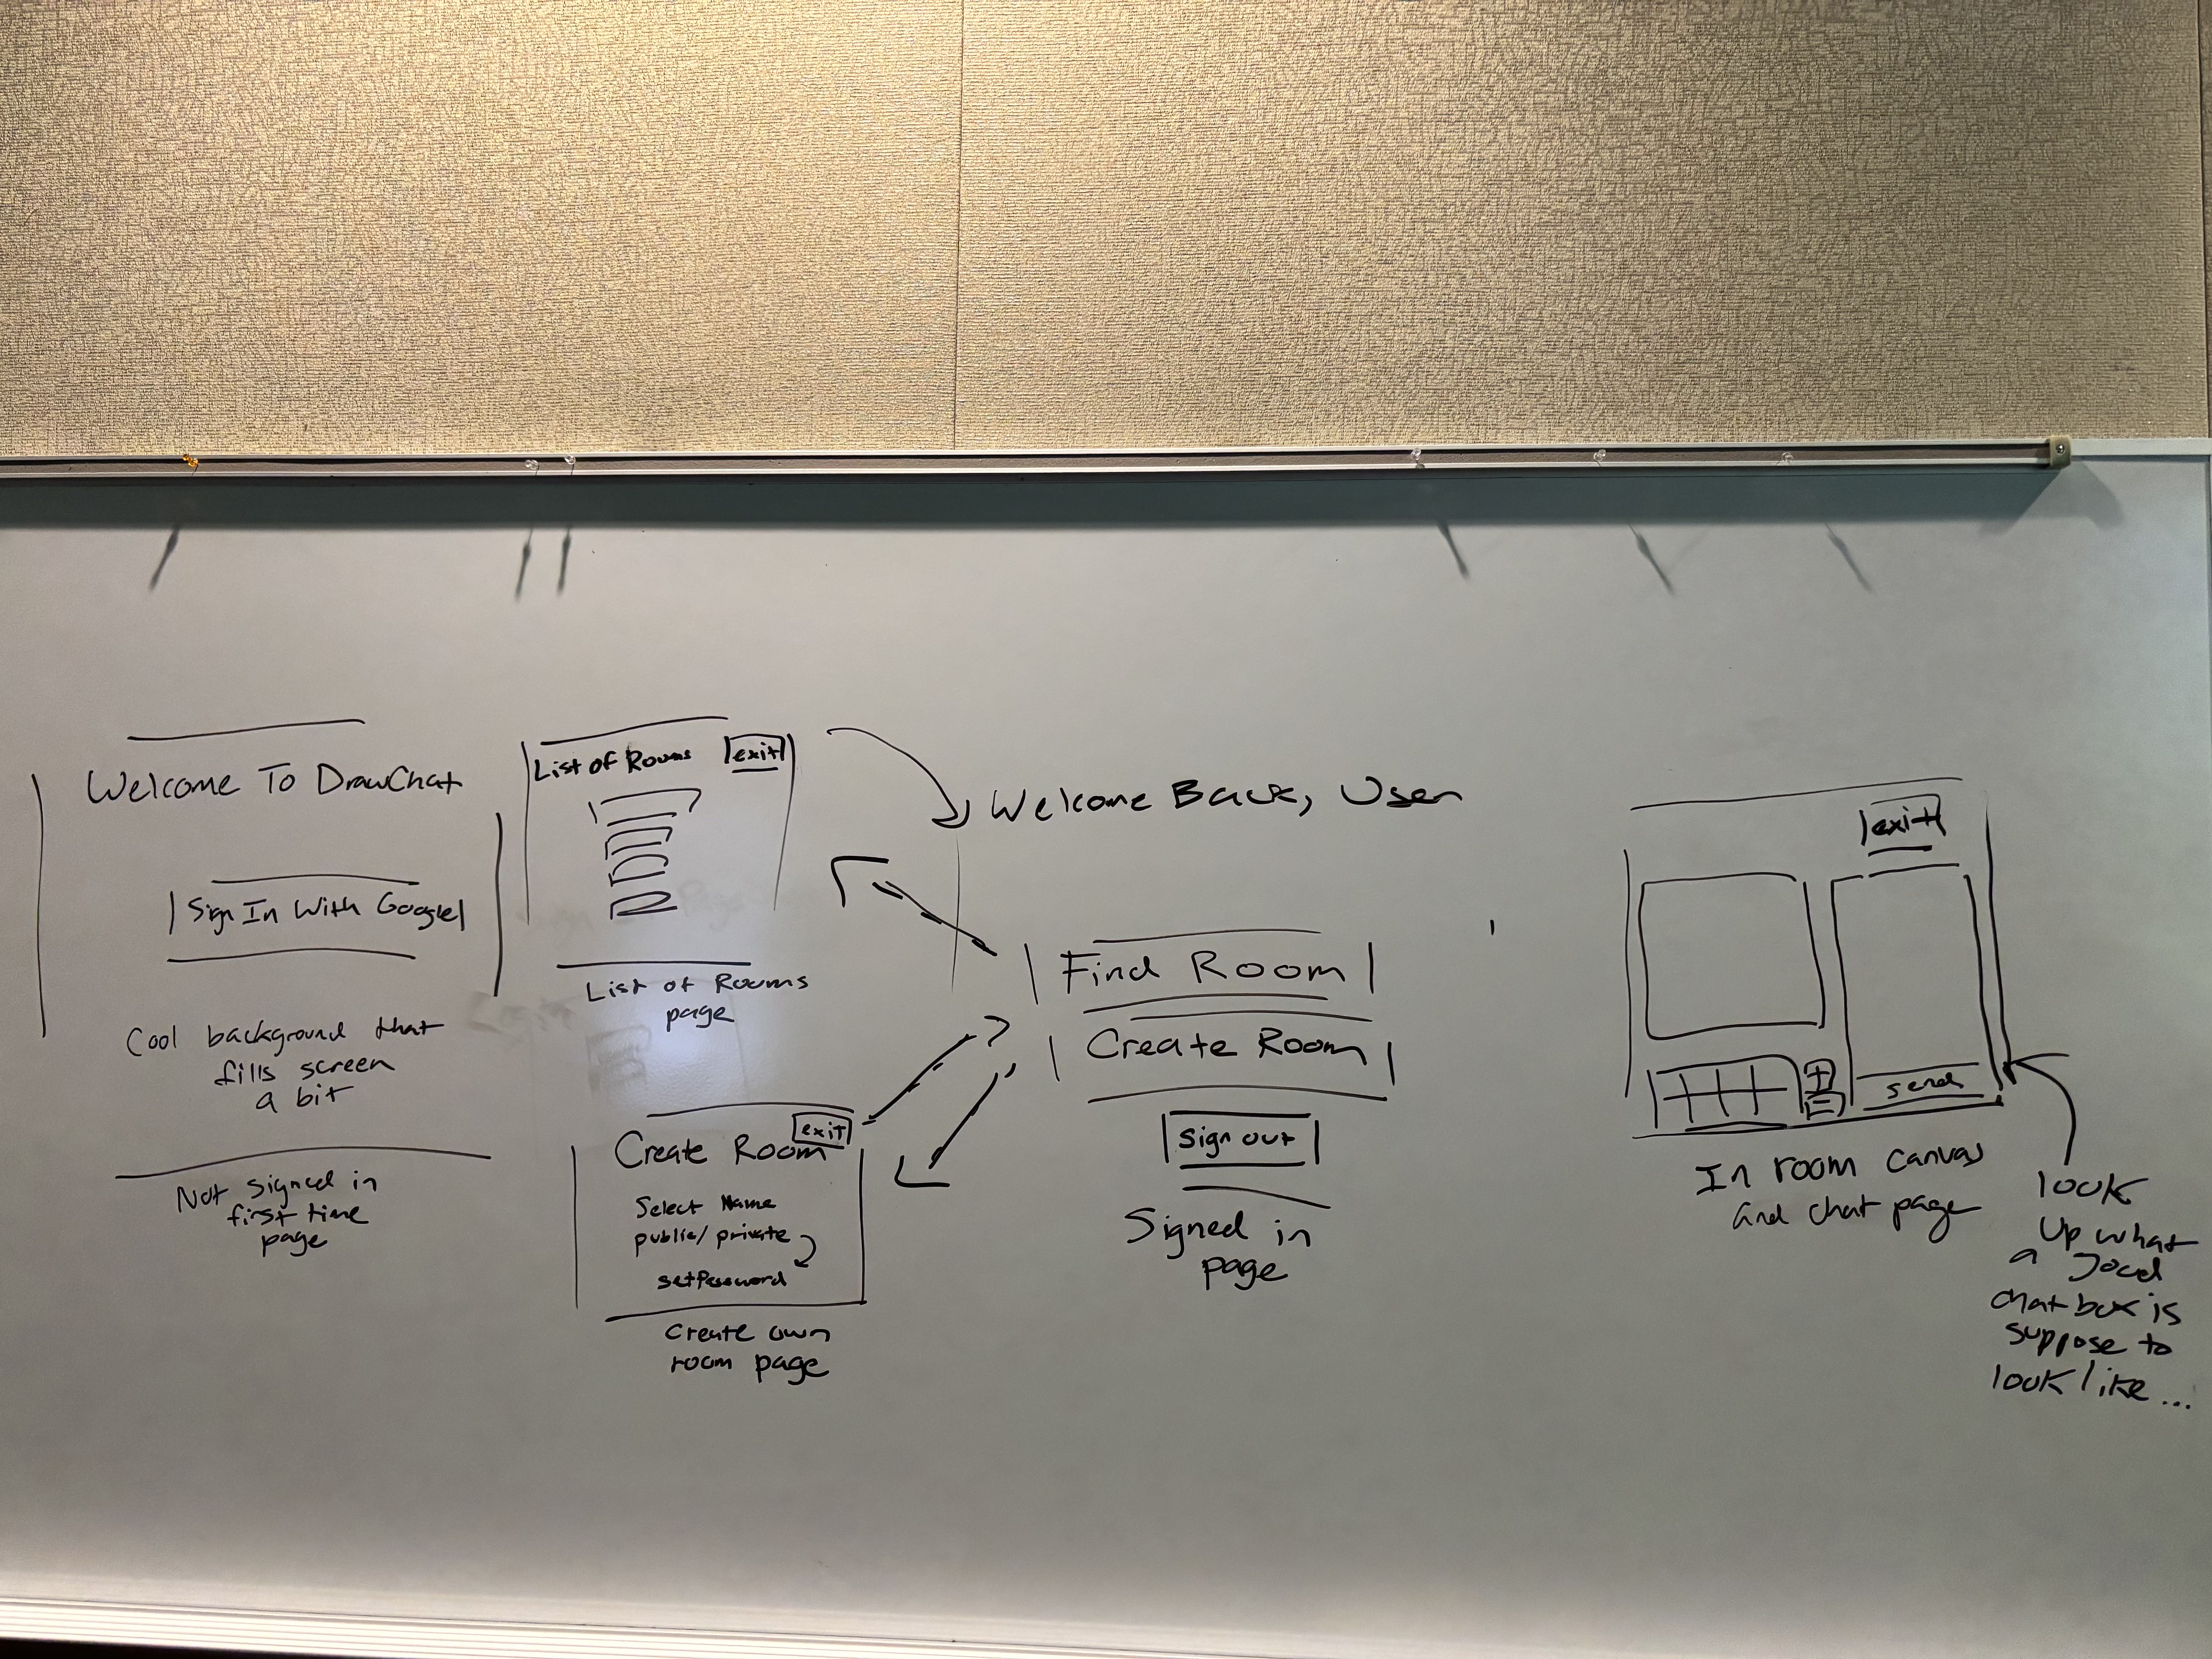 Welcome To DrawChat
Sign In With Google
Cool background that
fills screen
a bit
Not signed in
first time
page
List of Rooms
exit
List of Rooms
page
exit
Create Room
Select Name
public/private
setPassword
create own
room page
Welcome Back, User
Find Room
Create Room
sign out
Signed in
page
exit
+
-
send
In room canvas
and chat page
look
up what
a good
chatbox is
suppose to
look like...